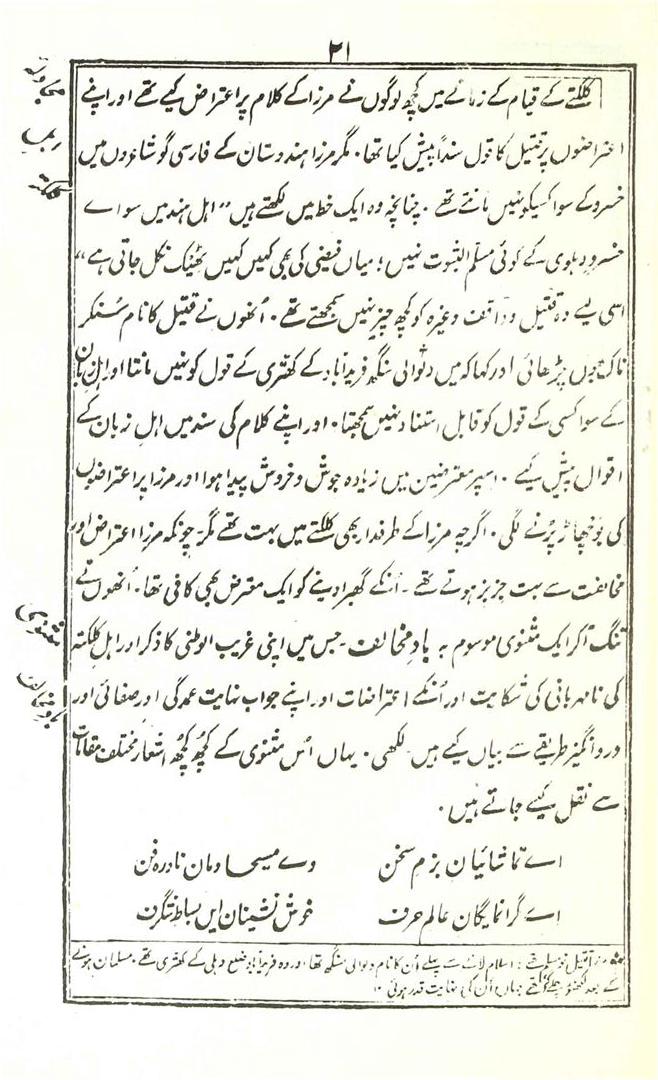 ۲۱
کلکتے کے قیام کے زمانے میں کچھ لوگوں نے مرزا کے کلام پر اعتراض کیے تھے اور اپنے
اعتراضوں پر قتیل کا قول سنداً پیش کیا تھا۔ مگر مرزا ہندوستان کے فارسی گو شاعروں میں
خسرو کے سوا کسیکو نہیں مانتے تھے۔ چنانچہ وہ ایک خط میں لکھتے ہیں "اہل ہند میں سواے
خسرو دہلوی کے کوئی مسلم الثبوت نہیں؛ میاں فیضی کی بھی کہیں کہیں ٹھیک نکل جاتی ہے"
اسی لیے وہ قتیل و واقف وغیرہ کو کچھ چیز نہیں سمجھتے تھے۔ اُنھوں نے قتیل کا نام سُنکر
ناک بھوں چڑھائی اور کہا کہ میں دلوالی سنگھ فریدآباد کے کھتری کے قول کو نہیں مانتا اور اہلِ زبان
کے سوا کسی کے قول کو قابل استناد نہیں سمجھتا۔ اور اپنے کلام کی سند میں اہلِ زبان کے
اقوال پیش کیے۔ اسپر معترضین میں زیادہ جوش و خروش پیدا ہوا اور مرزا پر اعتراضوں
کی بوچھاڑ پڑنے لگی۔ اگرچہ مرزا کے طرفدار بھی کلکتے میں بہت تھے مگر چونکہ مرزا اعتراض اور
مخالفت سے بہت جزبز ہوتے تھے۔ اُنکے گھبرا دینے کو ایک معترض بھی کافی تھا۔ اُنھوں نے
تنگ آکر ایک مثنوی موسوم بہ بادِ مخالف۔ جس میں اپنی غریب الوطنی کا ذکر اور اہلِ کلکتہ
کی نامہربانی کی شکایت اور اُنکے اعتراضات اور اپنے جواب نہایت عمدگی اور صفائی اور
دردانگیز طریقے سے بیاں کیے ہیں۔ لکھی۔ یہاں اُس مثنوی کے کچھ کچھ اشعار مختلف مقامات
سے نقل کیے جاتے ہیں۔
اے تماشائیانِ بزمِ سخن وے مسیحا دمانِ نادرہ فن
اے گرانمایگانِ عالمِ حرف خوش نشینانِ ایں بساطِ شگرف
مرزا قتیل نو مسلم تھے؛ اسلام لانے سے پہلے اُن کا نام دلوالی سنگھ تھا اور وہ فریدآباد ضلع دہلی کے کھتری تھے۔ مسلمان ہونے
کے بعد لکھنؤ چلے گئے تھے جہاں اُن کی نہایت قدر ہوئی ۱۲
کلکتہ
مثنوی
بادِ مخالف